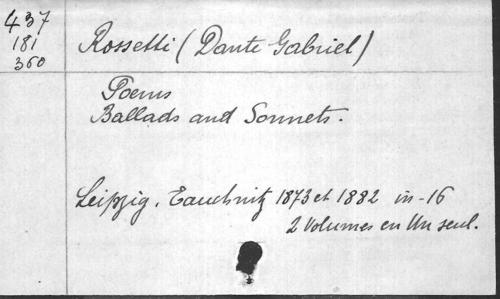 437
181
360
Rossetti (Dante Gabriel)
Poems
Ballads and Sonnets.
Leipzig. Tauchnitz 1873 et 1882 in-16
2 Volumes en Un seul.